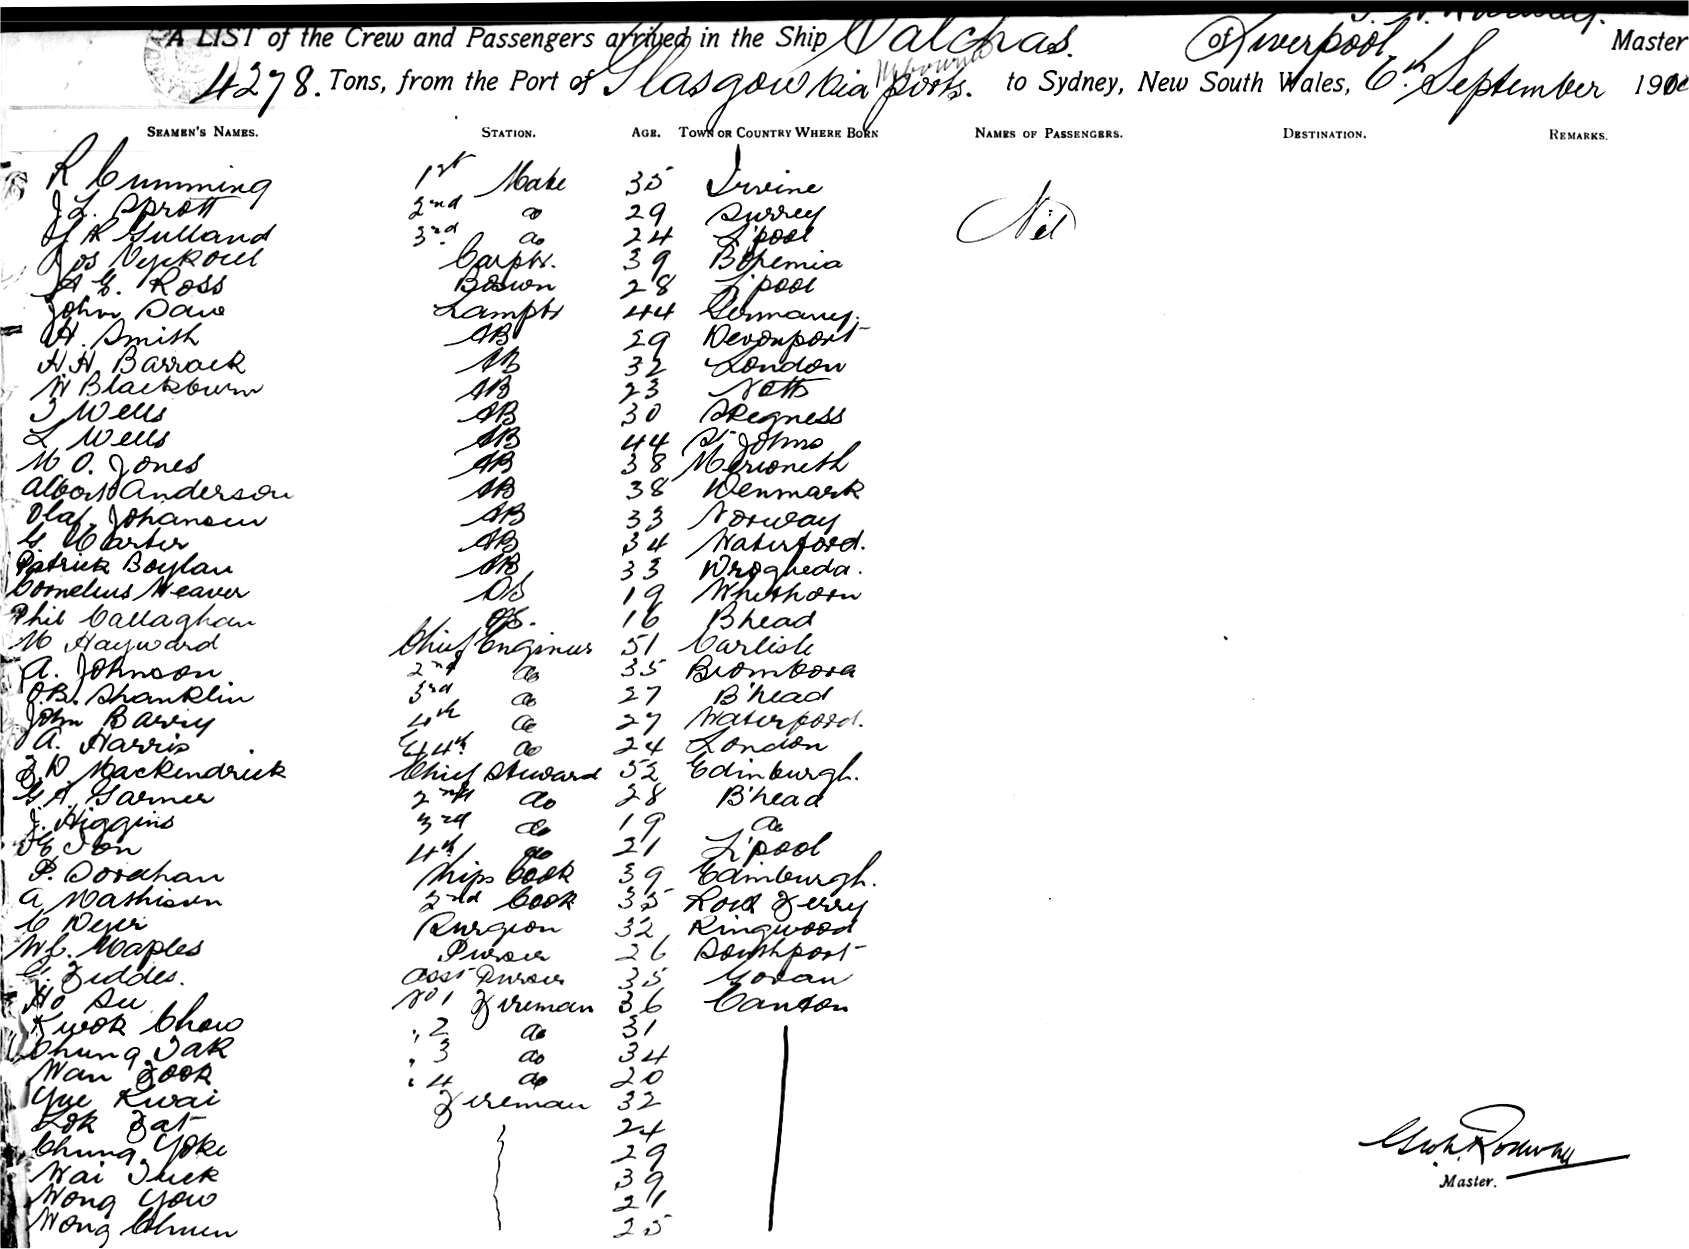 A LIST of the Crew and Passengers arrived in the Ship Calchas. of Liverpool, Master
4278. Tons, from the Port of Glasgow via ports. to Sydney, New South Wales, 6th September 190
SEAMEN'S NAMES. STATION. AGE. TOWN OR COUNTRY WHERE BORN NAMES OF PASSENGERS. DESTINATION. REMARKS.
R Cumming 1st Mate 35 Irvine
J L. Sprott 2nd do 29 Surrey Nil
R Gulland 3rd do 24 L'pool
Jos Carptr. 39 Bohemia
A E. Ross Bosun 28 L'pool
John Daw Lamptr 44 Germany.
H. Smith AB 29 Devonport
H H Barrack AB 32 London
W Blackburn AB 23 Notts
T Wells AB 30 Skegness
L Wells AB 44 St Johns
W O. Jones AB 38 Merioneth
Albert Anderson AB 38 Denmark
Olaf Johansen AB 33 Norway
G. Carter AB 34 Waterford.
Patrick Boylan AB 33 Drogheda.
Cornelius Weaver OS 19 Whithorn
Phil Callaghan OS. 16 Bhead
W Hayward Chief Engineer 51 Carlisle
A. Johnson 2nd do 35 Bromboro
O.B. Shanklin 3rd do 27 B'head
John Barry 4th do 27 Waterford.
A. Harris 4th do 24 London
Mackendrick Chief Steward 52 Edinburgh.
G A. Garner 2nd do 28 B'head
J. Higgins 3rd do 19 do
Ion 4th do 21 L'pool
P. Dorahan Ships Cook 39 Edinburgh.
A Mathison 2nd Cook 35 Rock Ferry
C Dyer Surgeon 32 Ringwood
W C. Maples Purser 26 Southport
G. Fiddes. Asst Purser 35 Govan
Ho Su No 1 Fireman 36 Canton
Kwok Chow " 2 do 31
Chung Tak " 3 do 34
Wan Fook " 4 do 20
Yue Kwai Fireman 32
Lok Fat 24
Chung Yoke 29
Wai Tuck 39
Wong Yow 21
Wong Chuen 25
Master.